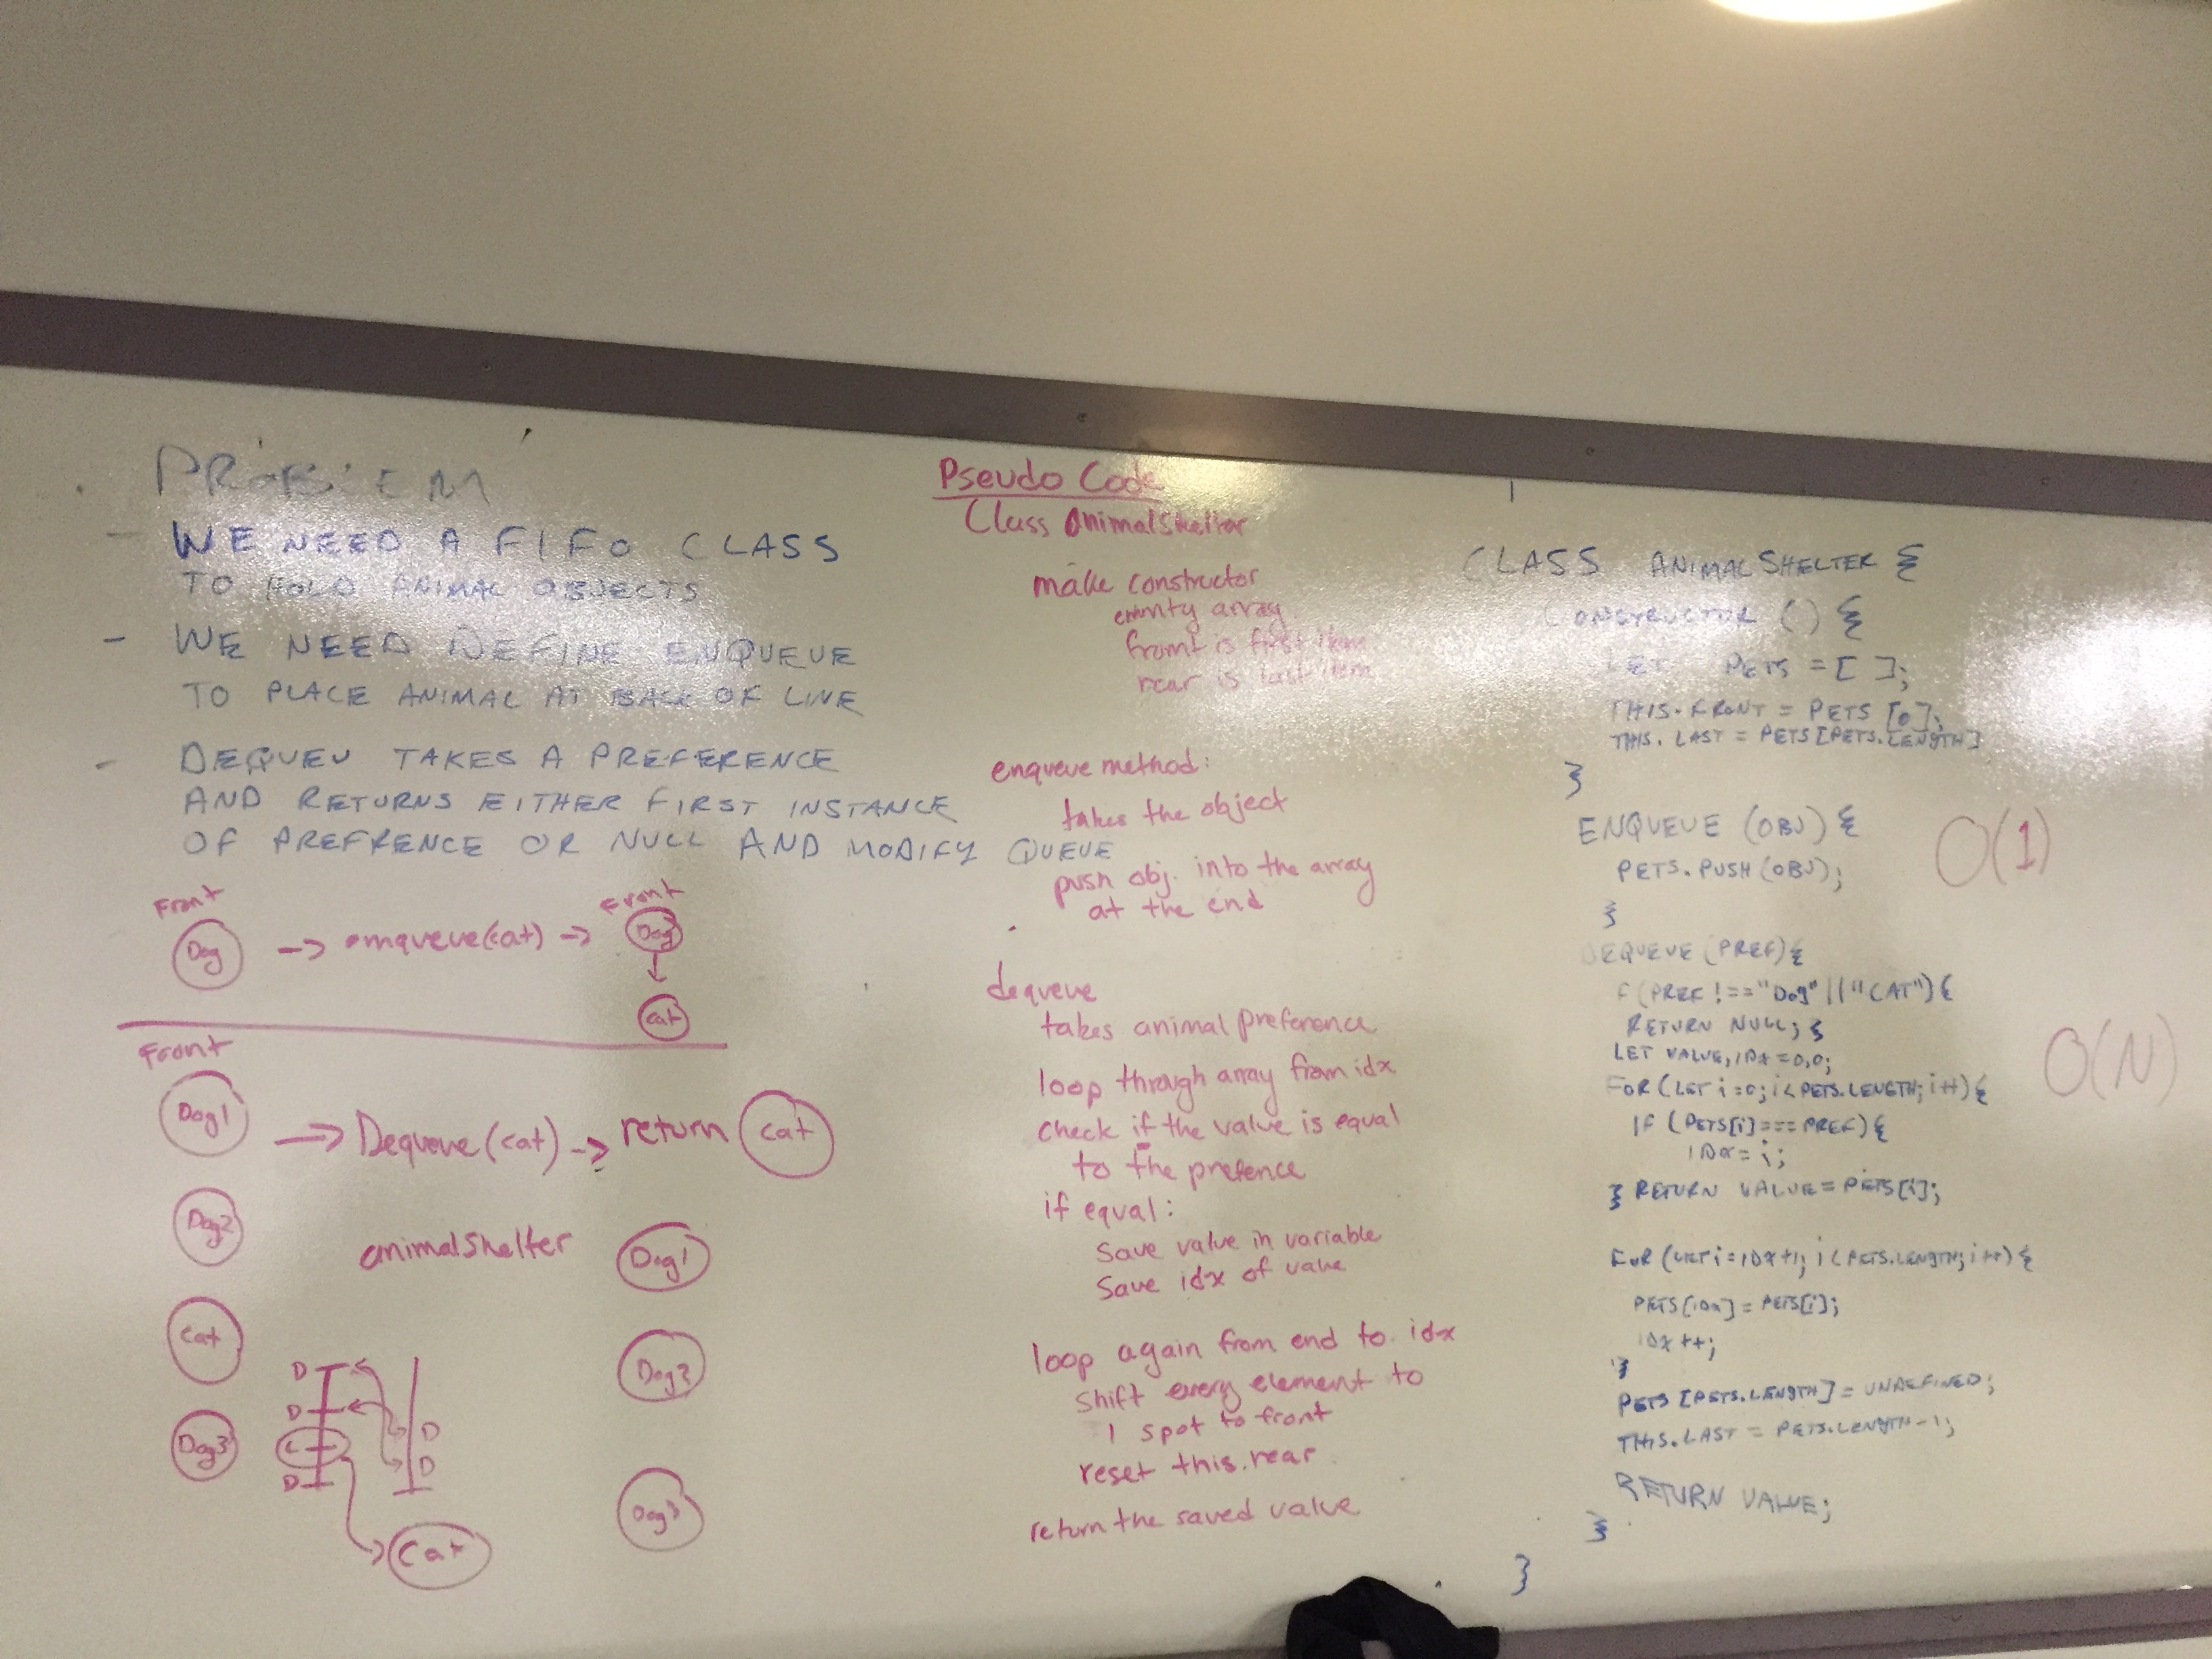 PROBLEM
- WE NEED A FIFO CLASS
TO HOLD ANIMAL OBJECTS
- WE NEED DEFINE ENQUEUE
TO PLACE ANIMAL AT BACK OF LINE
- DEQUEU TAKES A PREFERENCE
AND RETURNS EITHER FIRST INSTANCE
OF PREFRENCE OR NULL AND MODIFY QUEUE
Front
Dog -> enqueue(cat) ->
Front
Dog
cat
Front
Dog1
-> Dequeue(cat) -> return cat
Dog2
animalShelter
Dog1
Cat
Dog2
Dog3
Dog3
D
D
C
D
D
D
Cat
Pseudo Code
Class AnimalShelter
make constructor
empty array
front is first item
rear is last item
enqueue method:
takes the object
push obj. into the array
at the end
dequeue
takes animal preference
loop through array from idx
check if the value is equal
to the prefence
if equal:
Save value in variable
Save idx of value
loop again from end to idx
shift every element to
1 spot to front
reset this.rear
return the saved value
CLASS ANIMALSHELTER {
CONSTRUCTOR () {
LET PETS = [ ];
THIS.FRONT = PETS [0];
THIS.LAST = PETS[PETS.LENGTH]
}
ENQUEUE (OBJ) {
PETS.PUSH (OBJ);
}
O(1)
DEQUEUE (PREF){
F (PREF !== "Dog" || "CAT") {
RETURN NULL; }
LET VALUE, IDX = 0,0;
FOR (LET i=0; i<PETS.LENGTH; i++){
IF (PETS[i]===PREF){
IDX = i;
} RETURN VALUE = PETS[i];
FOR (LET i=IDX+1; i<PETS.LENGTH; i++){
PETS[IDX] = PETS[i];
IDX ++;
}
PETS [PETS.LENGTH] = UNDEFINED;
THIS.LAST = PETS.LENGTH-1;
RETURN VALUE;
}
}
O(N)